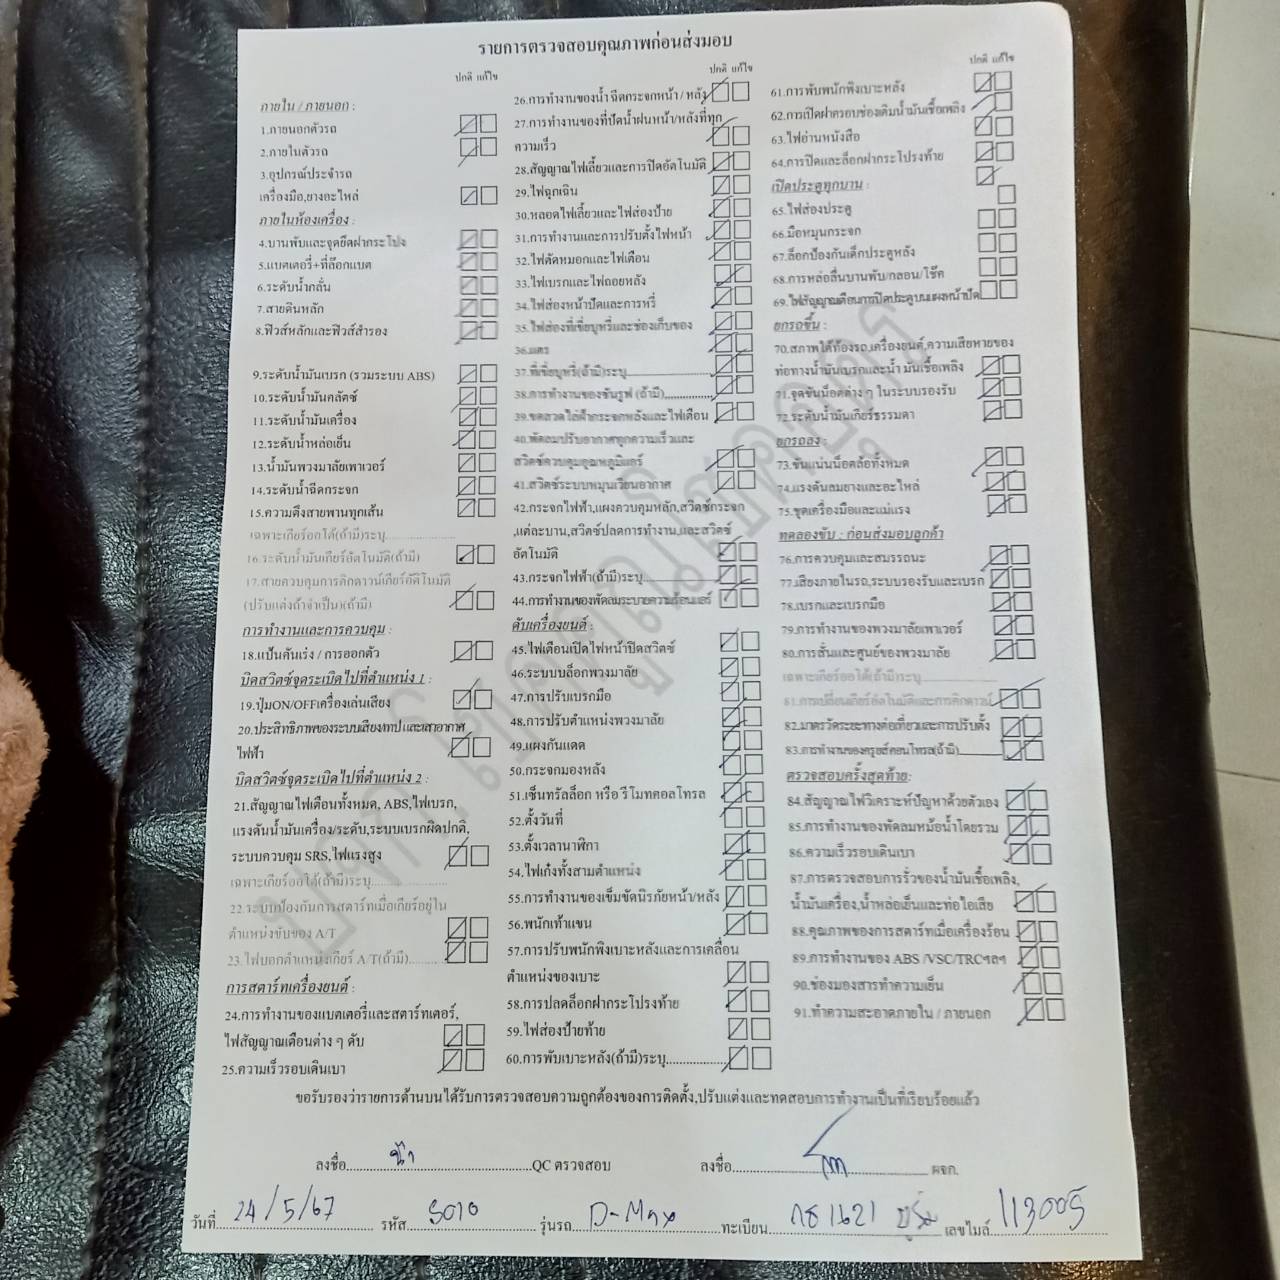 รายการตรวจสอบคุณภาพก่อนส่งมอบ
ปกติ แก้ไข
ภายใน / ภายนอก :
1.ภายนอกตัวรถ
2.ภายในตัวรถ
3.อุปกรณ์ประจำรถ
เครื่องมือ,ยางอะไหล่
ภายในห้องเครื่อง :
4.บานพับและจุดยึดฝากระโปรง
5.แบตเตอรี่+ที่ล๊อกแบต
6.ระดับน้ำกลั่น
7.สายดินหลัก
8.ฟิวส์หลักและฟิวส์สำรอง
9.ระดับน้ำมันเบรก (รวมระบบ ABS)
10.ระดับน้ำมันคลัตซ์
11.ระดับน้ำมันเครื่อง
12.ระดับน้ำหล่อเย็น
13.น้ำมันพวงมาลัยเพาเวอร์
14.ระดับน้ำฉีดกระจก
15.ความตึงสายพานทุกเส้น
เฉพาะเกียร์ออโต้(ถ้ามี)ระบุ
16.ระดับน้ำมันเกียร์อัตโนมัติ(ถ้ามี)
17.สายควบคุมการคิกดาวน์เกียร์อัตโนมัติ
(ปรับแต่งถ้าจำเป็น)(ถ้ามี)
การทำงานและการควบคุม :
18.แป้นคันเร่ง / การออกตัว
บิดสวิตซ์จุดระเบิดไปที่ตำแหน่ง 1 :
19.ปุ่มON/OFFเครื่องเล่นเสียง
20.ประสิทธิภาพของระบบเสียง/เทป และเสาอากาศ
ไฟฟ้า
บิดสวิตซ์จุดระเบิดไปที่ตำแหน่ง 2 :
21.สัญญาณไฟเตือนทั้งหมด, ABS,ไฟเบรก,
แรงดันน้ำมันเครื่อง/ระดับ,ระบบเบรกผิดปกติ,
ระบบควบคุม SRS,ไฟแรงสูง
เฉพาะเกียร์ออโต้(ถ้ามี)ระบุ
22.ระบบป้องกันการสตาร์ทเมื่อเกียร์อยู่ใน
ตำแหน่งขับของ A/T
23.ไฟบอกตำแหน่งเกียร์ A/T(ถ้ามี)
การสตาร์ทเครื่องยนต์ :
24.การทำงานของแบตเตอรี่และสตาร์ทเตอร์,
ไฟสัญญาณเตือนต่าง ๆ ดับ
25.ความเร็วรอบเดินเบา
ปกติ แก้ไข
26.การทำงานของน้ำฉีดกระจกหน้า / หลัง
27.การทำงานของที่ปัดน้ำฝนหน้า/หลังที่ทุก
ความเร็ว
28.สัญญาณไฟเลี้ยวและการปิดอัตโนมัติ
29.ไฟฉุกเฉิน
30.หลอดไฟเลี้ยวและไฟส่องป้าย
31.การทำงานและการปรับตั้งไฟหน้า
32.ไฟตัดหมอกและไฟเตือน
33.ไฟเบรกและไฟถอยหลัง
34.ไฟส่องหน้าปัดและการหรี่
35.ไฟส่องที่เขี่ยบุหรี่และช่องเก็บของ
36.แตร
37.ที่เขี่ยบุหรี่(ถ้ามี)ระบุ
38.การทำงานของซันรูฟ (ถ้ามี)
39.ขดลวดไล่ฝ้ากระจกหลังและไฟเตือน
40.พัดลมปรับอากาศทุกความเร็วและ
สวิตซ์ควบคุมอุณหภูมิแอร์
41.สวิตซ์ระบบหมุนเวียนอากาศ
42.กระจกไฟฟ้า,แผงควบคุมหลัก,สวิตซ์กระจก
,แต่ละบาน,สวิตซ์ปลดการทำงาน,และสวิตซ์
อัตโนมัติ
43.กระจกไฟฟ้า(ถ้ามี)ระบุ
44.การทำงานของพัดลมระบายความร้อนแอร์
ดับเครื่องยนต์ :
45.ไฟเตือนเปิดไฟหน้าปิดสวิตซ์
46.ระบบบล็อกพวงมาลัย
47.การปรับเบรกมือ
48.การปรับตำแหน่งพวงมาลัย
49.แผงกันแดด
50.กระจกมองหลัง
51.เซ็นทรัลล็อก หรือ รีโมทคอลโทรล
52.ตั้งวันที่
53.ตั้งเวลานาฬิกา
54.ไฟเก๋งทั้งสามตำแหน่ง
55.การทำงานของเข็มขัดนิรภัยหน้า/หลัง
56.พนักเท้าแขน
57.การปรับพนักพิงเบาะหลังและการเคลื่อน
ตำแหน่งของเบาะ
58.การปลดล็อกฝากระโปรงท้าย
59.ไฟส่องป้ายท้าย
60.การพับเบาะหลัง(ถ้ามี)ระบุ
ปกติ แก้ไข
61.การพับพนักพิงเบาะหลัง
62.การเปิดฝาครอบช่องเติมน้ำมันเชื้อเพลิง
63.ไฟอ่านหนังสือ
64.การปิดและล็อกฝากระโปรงท้าย
เปิดประตูทุกบาน :
65.ไฟส่องประตู
66.มือหมุนกระจก
67.ล็อกป้องกันเด็กประตูหลัง
68.การหล่อลื่นบานพับ/กลอน/โช๊ค
69.ไฟสัญญาณเตือนการปิดประตูบนแผงหน้าปัด
ยกรถขึ้น :
70.สภาพใต้ท้องรถ,เครื่องยนต์,ความเสียหายของ
ท่อทางน้ำมันเบรกและน้ำมันเชื้อเพลิง
71.จุดขันน็อตต่าง ๆ ในระบบรองรับ
72.ระดับน้ำมันเกียร์ธรรมดา
ยกรถลง :
73.ขันแน่นน็อตล้อทั้งหมด
74.แรงดันลมยางและอะไหล่
75.ชุดเครื่องมือและแม่แรง
ทดลองขับ : ก่อนส่งมอบลูกค้า
76.การควบคุมและสมรรถนะ
77.เสียงภายในรถ,ระบบรองรับและเบรก
78.เบรกและเบรกมือ
79.การทำงานของพวงมาลัยเพาเวอร์
80.การสั่นและศูนย์ของพวงมาลัย
เฉพาะเกียร์ออโต้(ถ้ามี)ระบุ
81.การเปลี่ยนเกียร์อัตโนมัติและการคิกดาวน์
82.มาตรวัดระยะทางต่อเที่ยวและการปรับตั้ง
83.การทำงานของครูซส์คอนโทรล(ถ้ามี)
ตรวจสอบครั้งสุดท้าย:
84.สัญญาณไฟวิเคราะห์ปัญหาด้วยตัวเอง
85.การทำงานของพัดลมหม้อน้ำโดยรวม
86.ความเร็วรอบเดินเบา
87.การตรวจสอบการรั่วของน้ำมันเชื้อเพลิง,
น้ำมันเครื่อง,น้ำหล่อเย็นและท่อไอเสีย
88.คุณภาพของการสตาร์ทเมื่อเครื่องร้อน
89.การทำงานของ ABS /VSC/TRCฯลฯ
90.ช่องมองสารทำความเย็น
91.ทำความสะอาดภายใน / ภายนอก
ขอรับรองว่ารายการด้านบนได้รับการตรวจสอบความถูกต้องของการติดตั้ง,ปรับแต่งและทดสอบการทำงานเป็นที่เรียบร้อยแล้ว
ลงชื่อ QC ตรวจสอบ ลงชื่อ ผจก.
วันที่ 24/5/67 รหัส 3010 รุ่นรถ D-Max ทะเบียน เลขไมล์ 113005